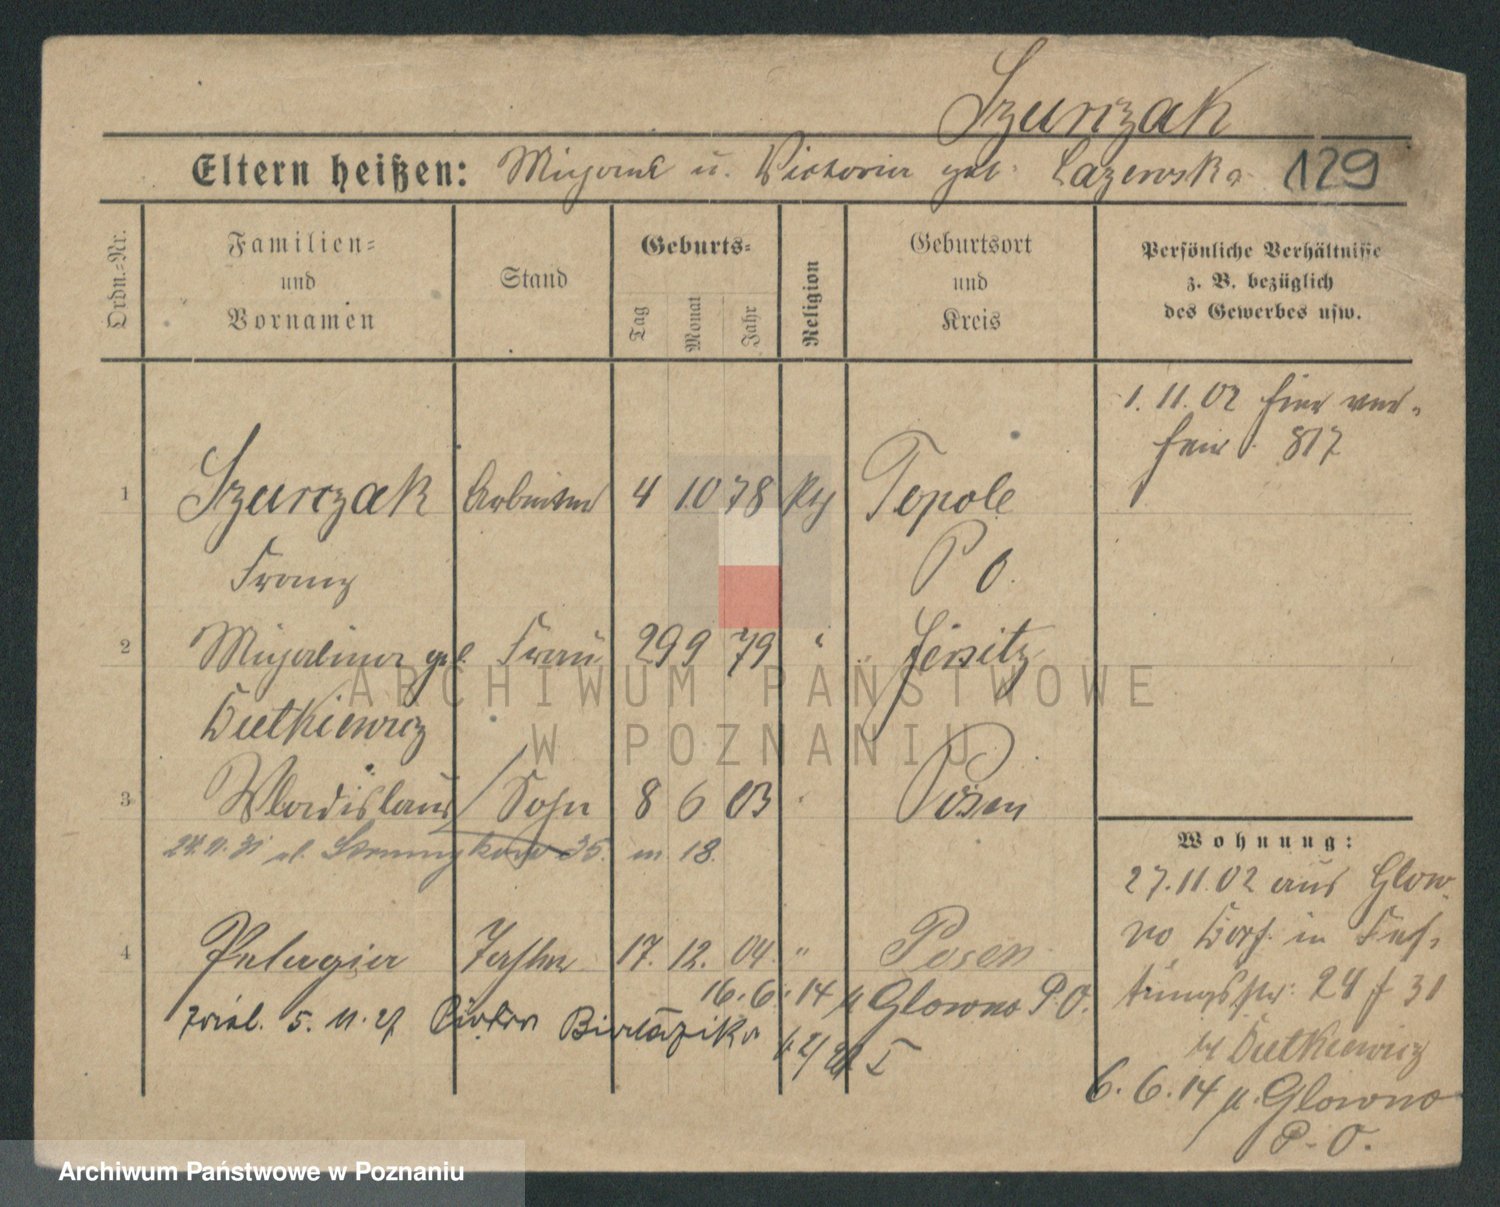 Szurczak
Eltern heißen: Michael u. Victoria geb. Lazewska 129
Ordn.-Nr.
Familien-
und
Vornamen
Stand
Geburts-
Tag
Monat
Jahr
Religion
Geburtsort
und
Kreis
Persönliche Verhältnisse
z. B. bezüglich
des Gewerbes usw.
1. 11. 02 hier ver-
heir. 817
1 Szurczak Arbeiter 4 10 78 kth Topole
Franz P O.
2 Michalina geb. Frau 29 9 79 " Jersitz
Dutkiewicz
3 Wladislaus Sohn 8 6 03 " Posen
35. m 18.
Wohnung:
27. 11. 02 aus Glow-
no Dorf. in Fes-
tungsstr. 24 f 31
bei Dutkiewicz
4 Pelagia Tochter 17. 12. 04. " Posen
16. 6. 14 n. Glowno P. O.
5. 11. 27
6. 6. 14 n. Glowno
P. O.
ARCHIWUM PAŃSTWOWE
W POZNANIU
Archiwum Państwowe w Poznaniu